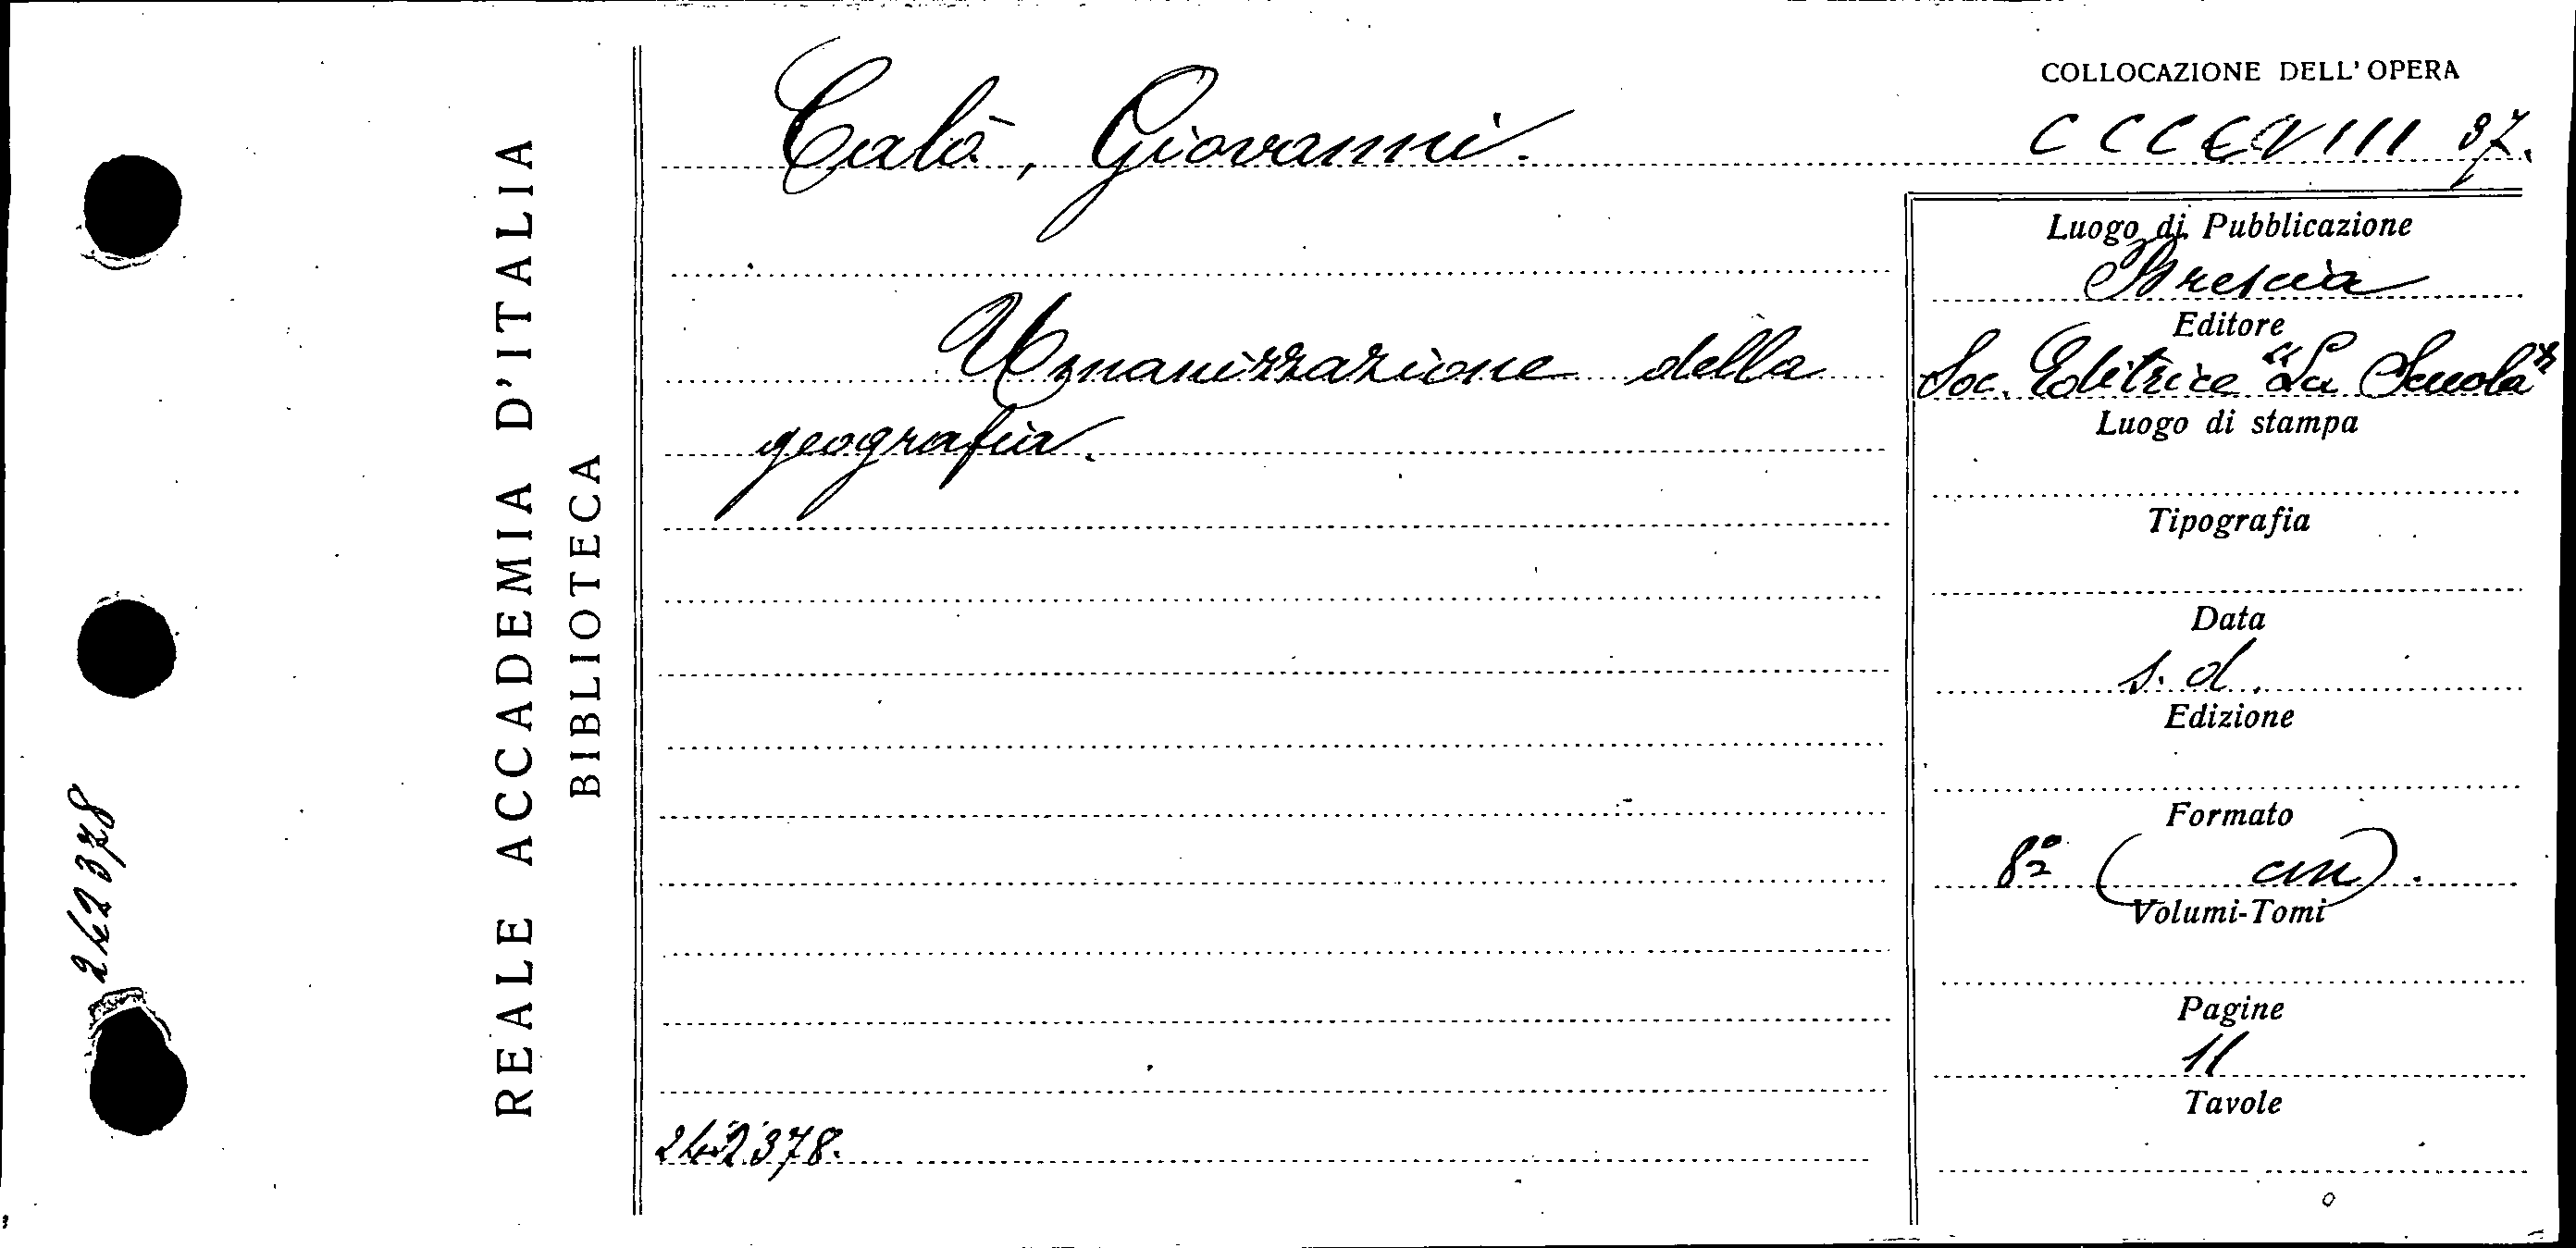 COLLOCAZIONE DELL' OPERA
Calò, Giovanni.
CCCCVIII 37.
REALE ACCADEMIA D'ITALIA
BIBLIOTECA
242378
Umanizzazione della
geografia.
242378.
Luogo di Pubblicazione
Brescia
Editore
Soc. Editrice "La Scuola"
Luogo di stampa
Tipografia
Data
s. d.
Edizione
Formato
8º ( cm).
Volumi-Tomi
Pagine
11
Tavole